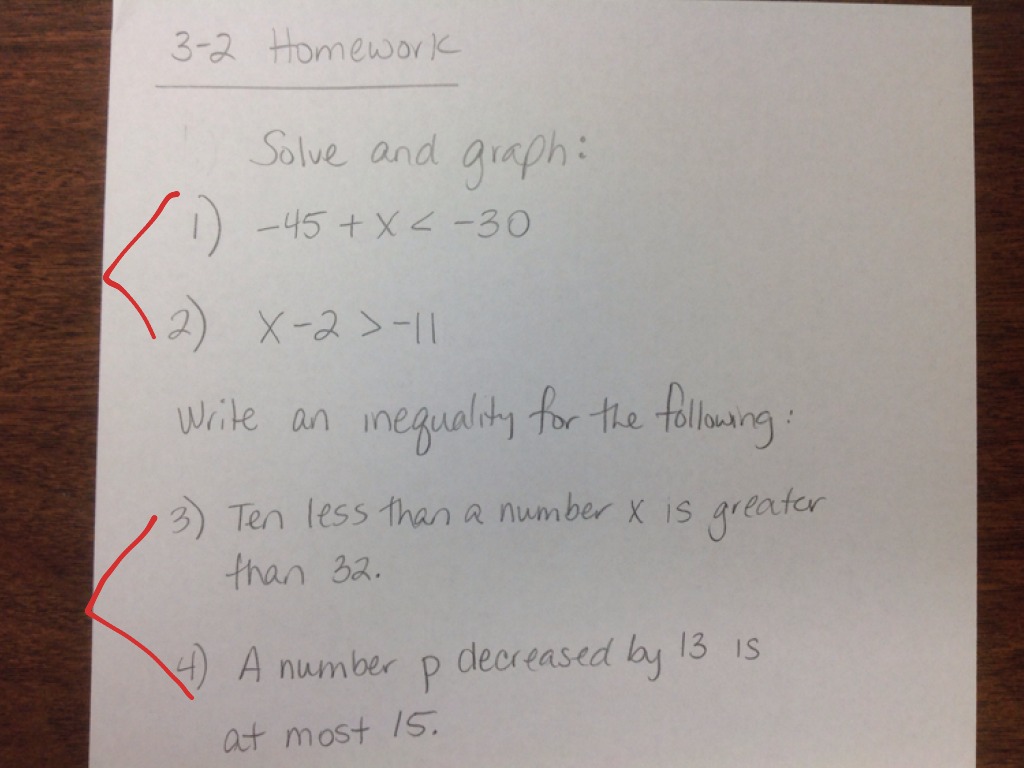 3-2 Homework
Solve and graph:
1) -45 + x < -30
2) x - 2 > -11
Write an inequality for the following:
3) Ten less than a number x is greater
than 32.
4) A number p decreased by 13 is
at most 15.